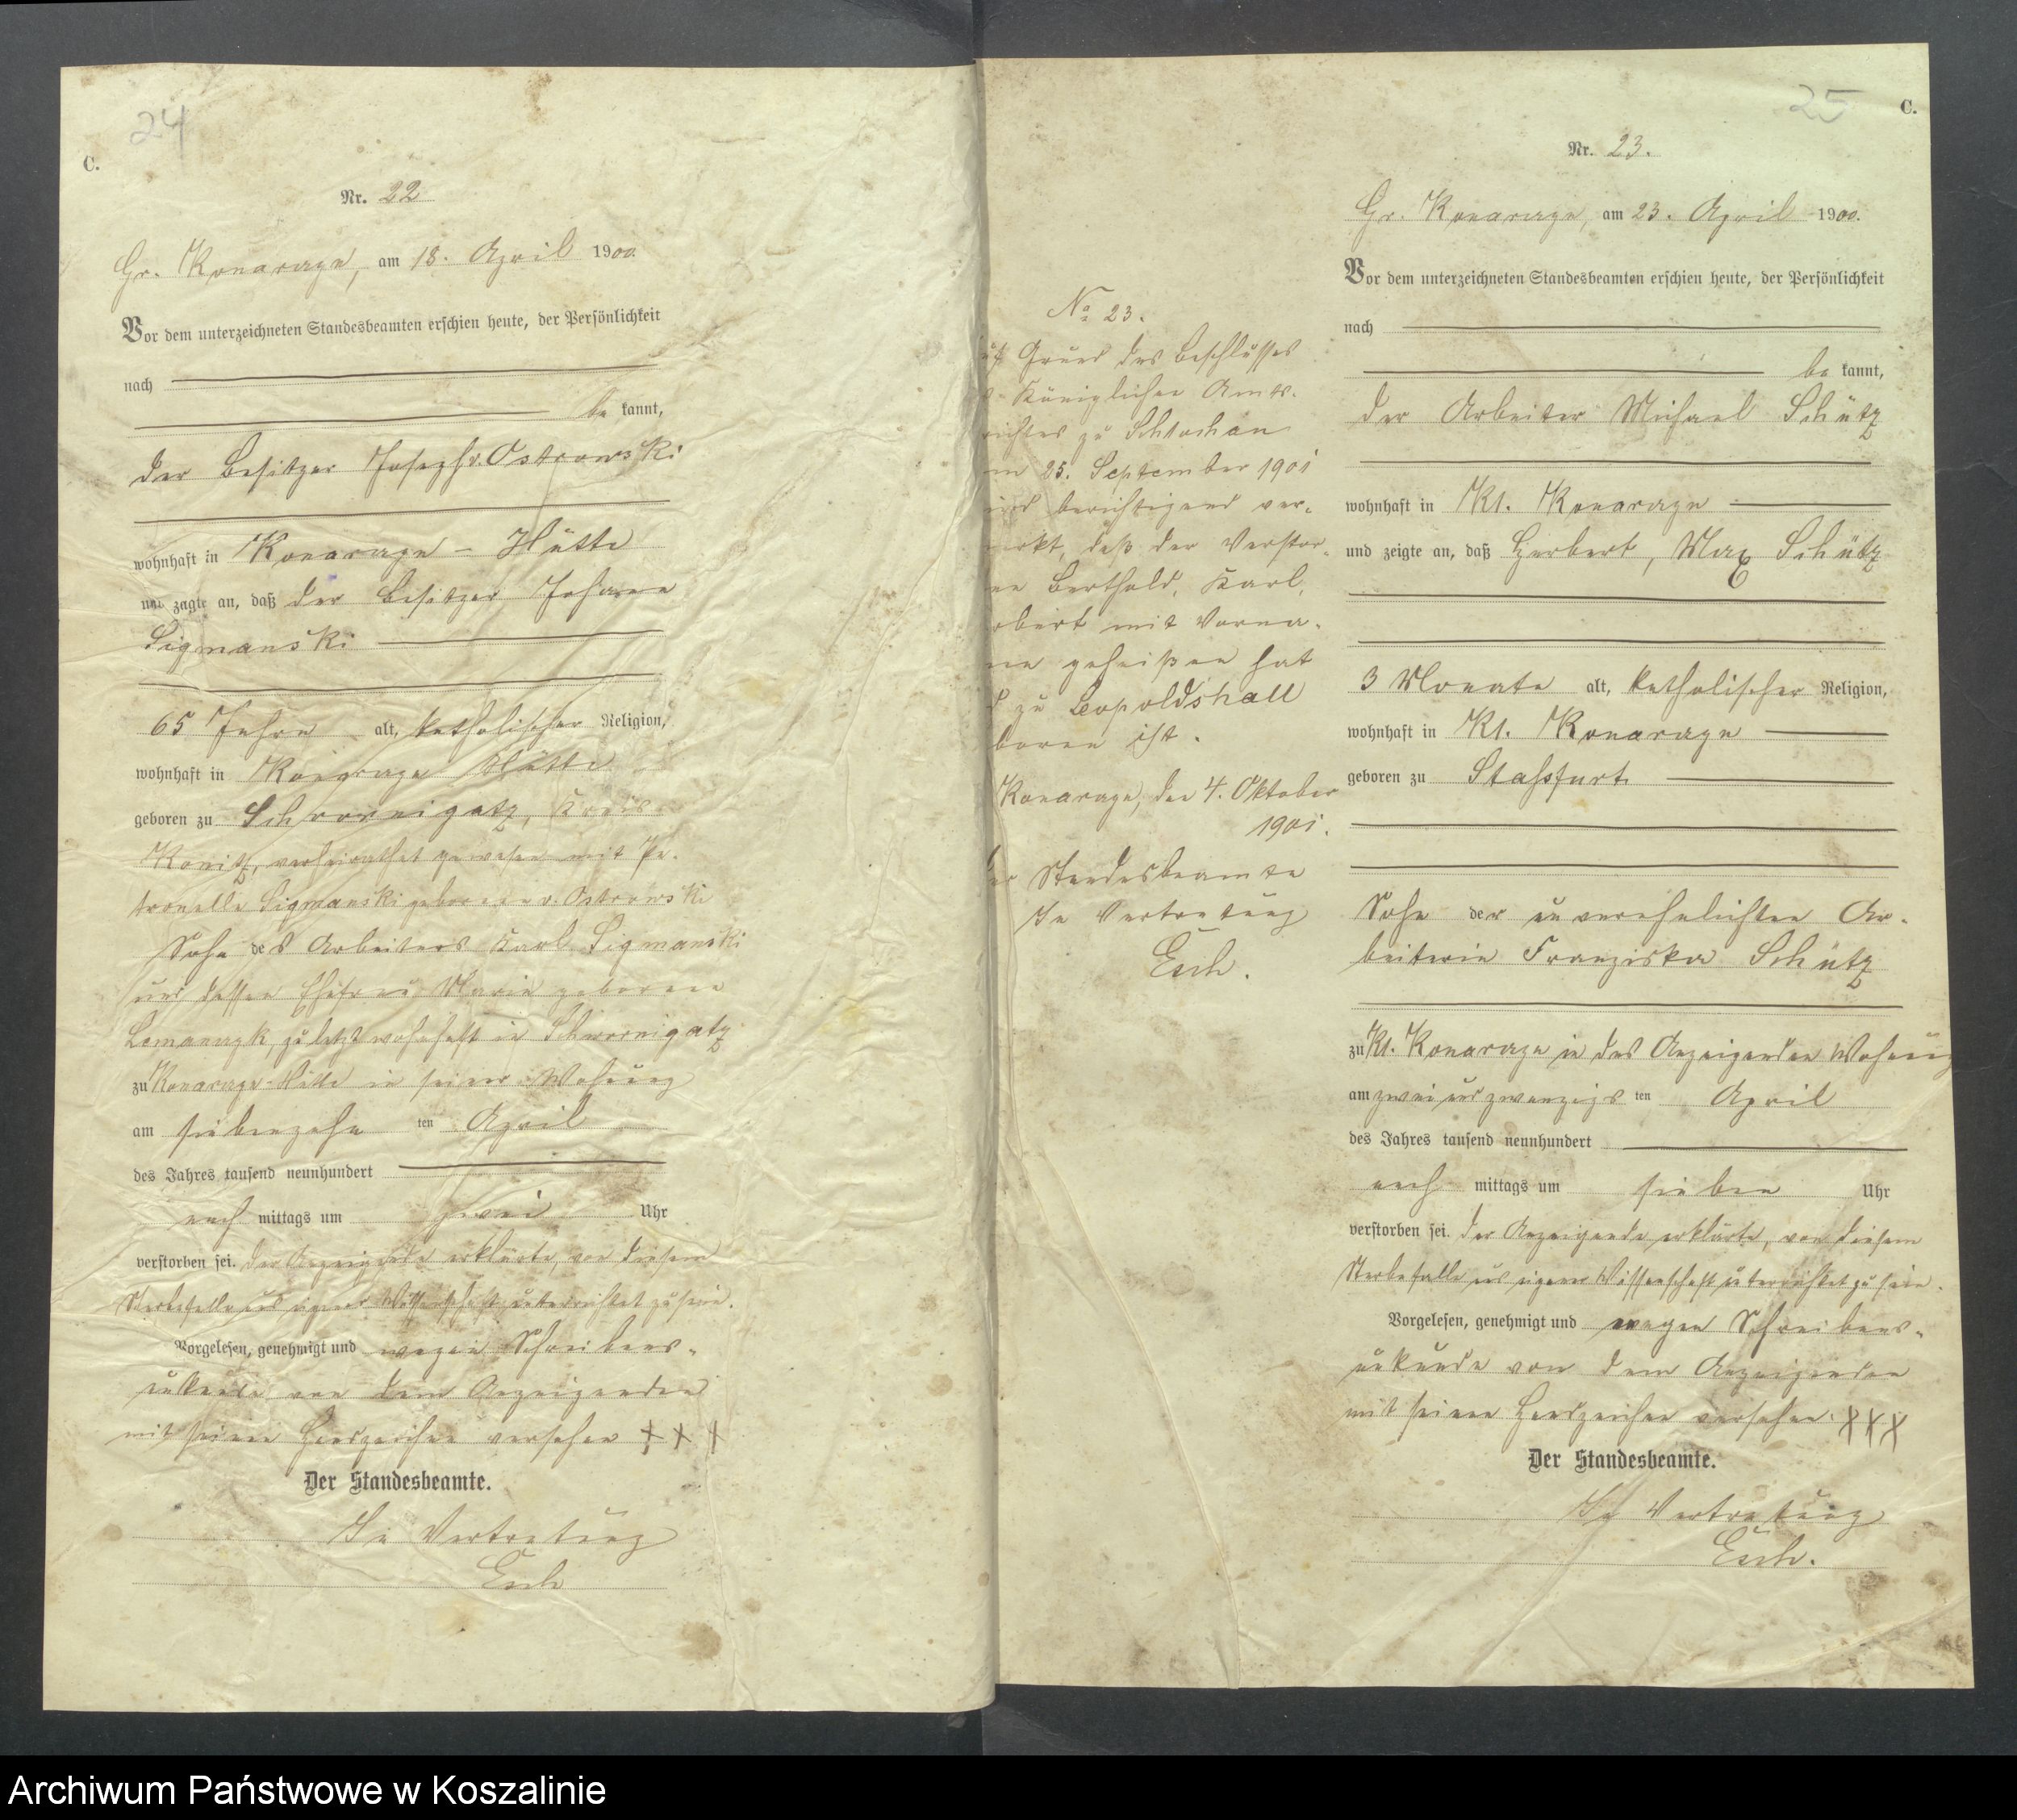 24
C.
Nr. 22
Gr. Konarzyn, am 18. April 1900.
Vor dem unterzeichneten Standesbeamten erschien heute, der Persönlichkeit
nach
be kannt,
der Besitzer Joseph v. Ostrowski
wohnhaft in Konarzyn - Hütte
und zeigte an, daß der Besitzer Johann
Sigmanski
65 Jahre alt, katholischer Religion,
wohnhaft in Konarzyn Hütte
geboren zu Schwornigatz, Kreis
Konitz, verheirathet gewesen mit Pe-
tronella Sigmanski geborenen v. Ostrowski
Sohn des Arbeiters Karl Sigmanski
und dessen Ehefrau Maria geborene
zuletzt wohnhaft in Schwornigatz
zu Konarzyn-Hütte in seiner Wohnung
am siebenzehn ten April
des Jahres tausend neunhundert
nach mittags um zwei Uhr
verstorben sei. Der Anzeigende erklärte, von diesem
Sterbefalle aus eigener Wissenschaft unterrichtet zu sein.
Vorgelesen, genehmigt und wegen Schreibens-
unkunde von dem Anzeigenden
mit seinen Handzeichen versehen + + +
Der Standesbeamte.
In Vertretung
Esch
No 23.
uf Grund des Beschlusses
s Königlichen Amts-
richtes zu Schlochau
m 25. September 1901
ird berichtigend ver-
merkt, daß der Verstor-
ne Berthold, Karl,
rbert mit Vorna-
en geheißen hat
d zu Leopoldshall
boren ist.
Konarzyn, den 4. Oktober
1901.
er Standesbeamte
In Vertretung
Esch.
25
C.
Nr. 23.
Gr. Konarzyn, am 23. April 1900.
Vor dem unterzeichneten Standesbeamten erschien heute, der Persönlichkeit
nach
be kannt,
der Arbeiter Michael Schütz
wohnhaft in Kl. Konarzyn
und zeigte an, daß Herbert, Max Schütz
3 Monate alt, katholischer Religion,
wohnhaft in Kl. Konarzyn
geboren zu Staßfurt
Sohn der unverehelichten Ar-
beiterin Franziska Schütz
zu Kl. Konarzyn in des Anzeigenden Wohnung
am zwei und zwanzigs ten April
des Jahres tausend neunhundert
nach mittags um sieben Uhr
verstorben sei. Der Anzeigende erklärte, von diesem
Sterbefalle aus eigener Wissenschaft unterrichtet zu sein.
Vorgelesen, genehmigt und wegen Schreibens-
unkunde von dem Anzeigenden
mit seinen Handzeichen versehen. XXX
Der Standesbeamte.
In Vertretung
Esch.
Archiwum Państwowe w Koszalinie